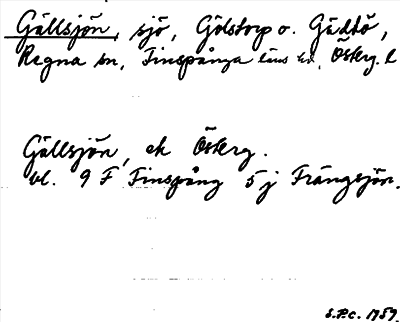 Gällsjön, sjö, Gölstorp o. Gädtö,
Regna sn, Finspånga läns hd, Österg. l
Gällsjön, ek Österg.
bl. 9 F Finspång 5 j Frängsjön.
S.P.C. 1959.